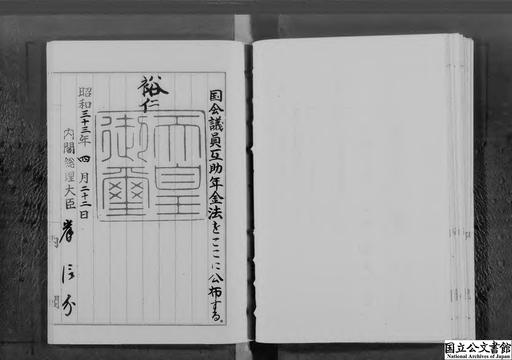 国会議員互助年金法をここに公布する。
裕仁
天皇
御璽
昭和三十三年四月二十二日
内閣総理大臣 岸信介
内閣
国立公文書館
National Archives of Japan